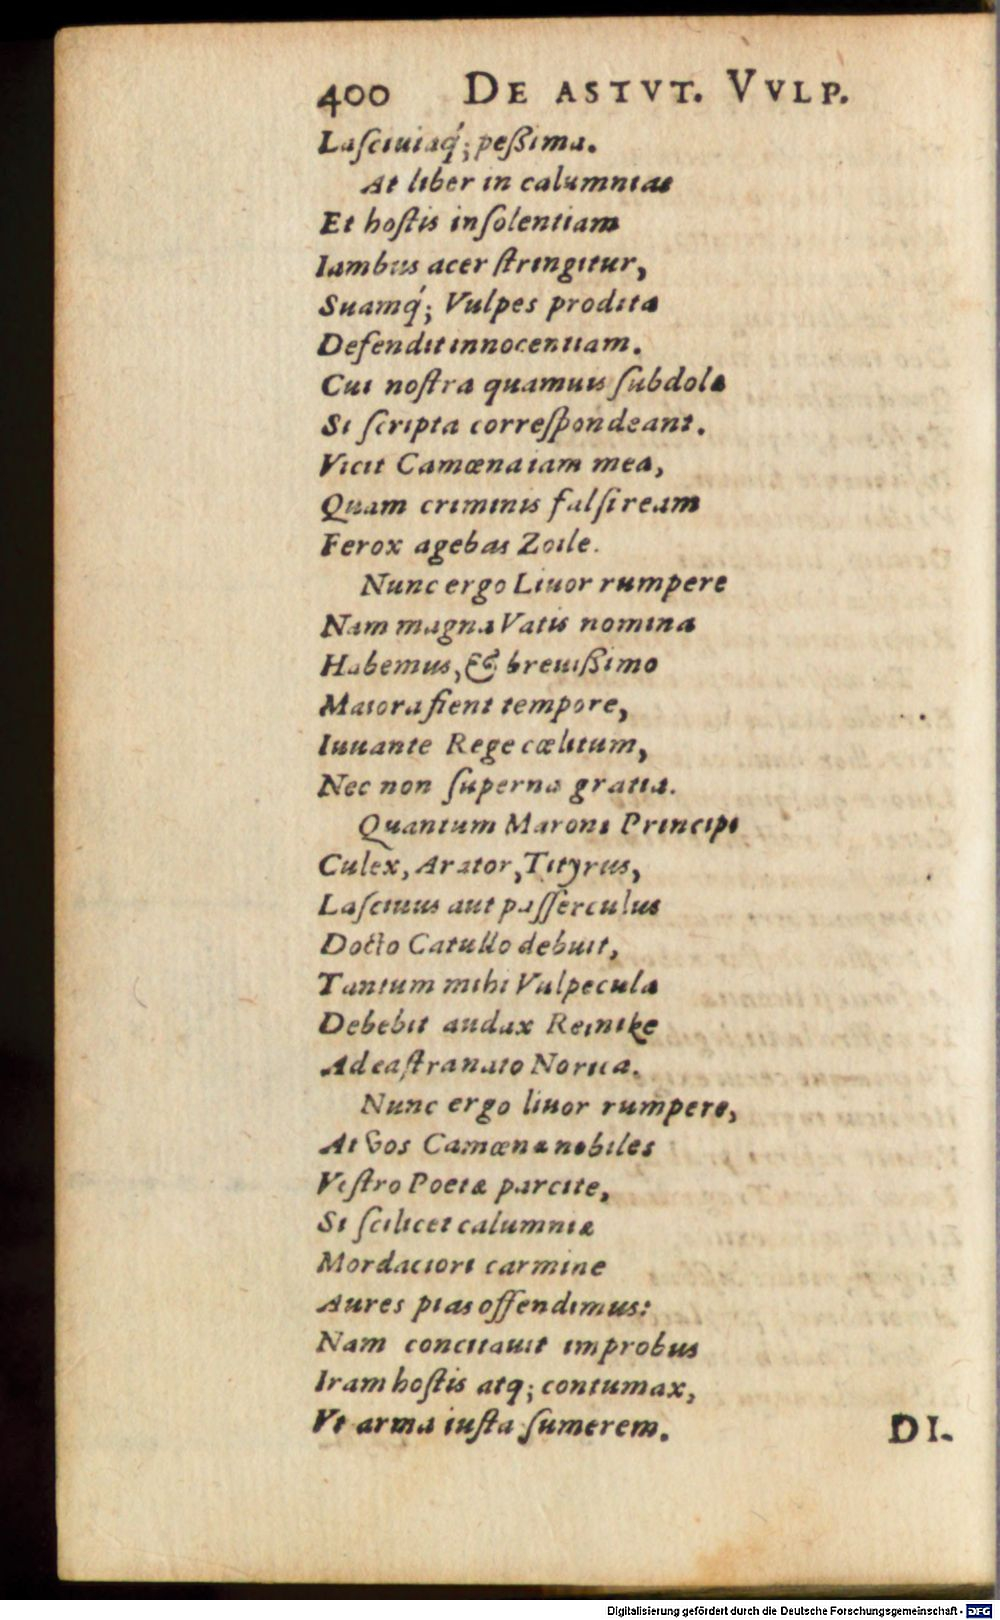 400 DE ASTVT. VVLP.
Laſciuiaq́; peßima.
At liber in calumnias
Et hoſtis inſolentiam
Iambus acer ſtringitur,
Suamq́; Vulpes prodita
Defendit innocentiam.
Cui noſtra quamuis ſubdola
Si ſcripta correſpondeant.
Vicit Camœna iam mea,
Quam criminis falſi ream
Ferox agebas Zoile.
Nunc ergo Liuor rumpere
Nam magna Vatis nomina
Habemus, & breuißimo
Maiora fient tempore,
Iuuante Rege cœlitum,
Nec non ſuperna gratia.
Quantum Maroni Principi
Culex, Arator, Tityrus,
Laſciuus aut paſſerculus
Docto Catullo debuit,
Tantum mihi Vulpecula
Debebit audax Reinike
Ad eaſtra nato Norica.
Nunc ergo liuor rumpere,
At vos Camœnæ nobiles
Veſtro Poetæ parcite,
Si ſcilicet calumniæ
Mordaciori carmine
Aures pias offendimus:
Nam concitauit improbus
Iram hoſtis atq; contumax,
Vt arma iuſta ſumerem.
DI-
Digitalisierung gefördert durch die Deutsche Forschungsgemeinschaft - DFG